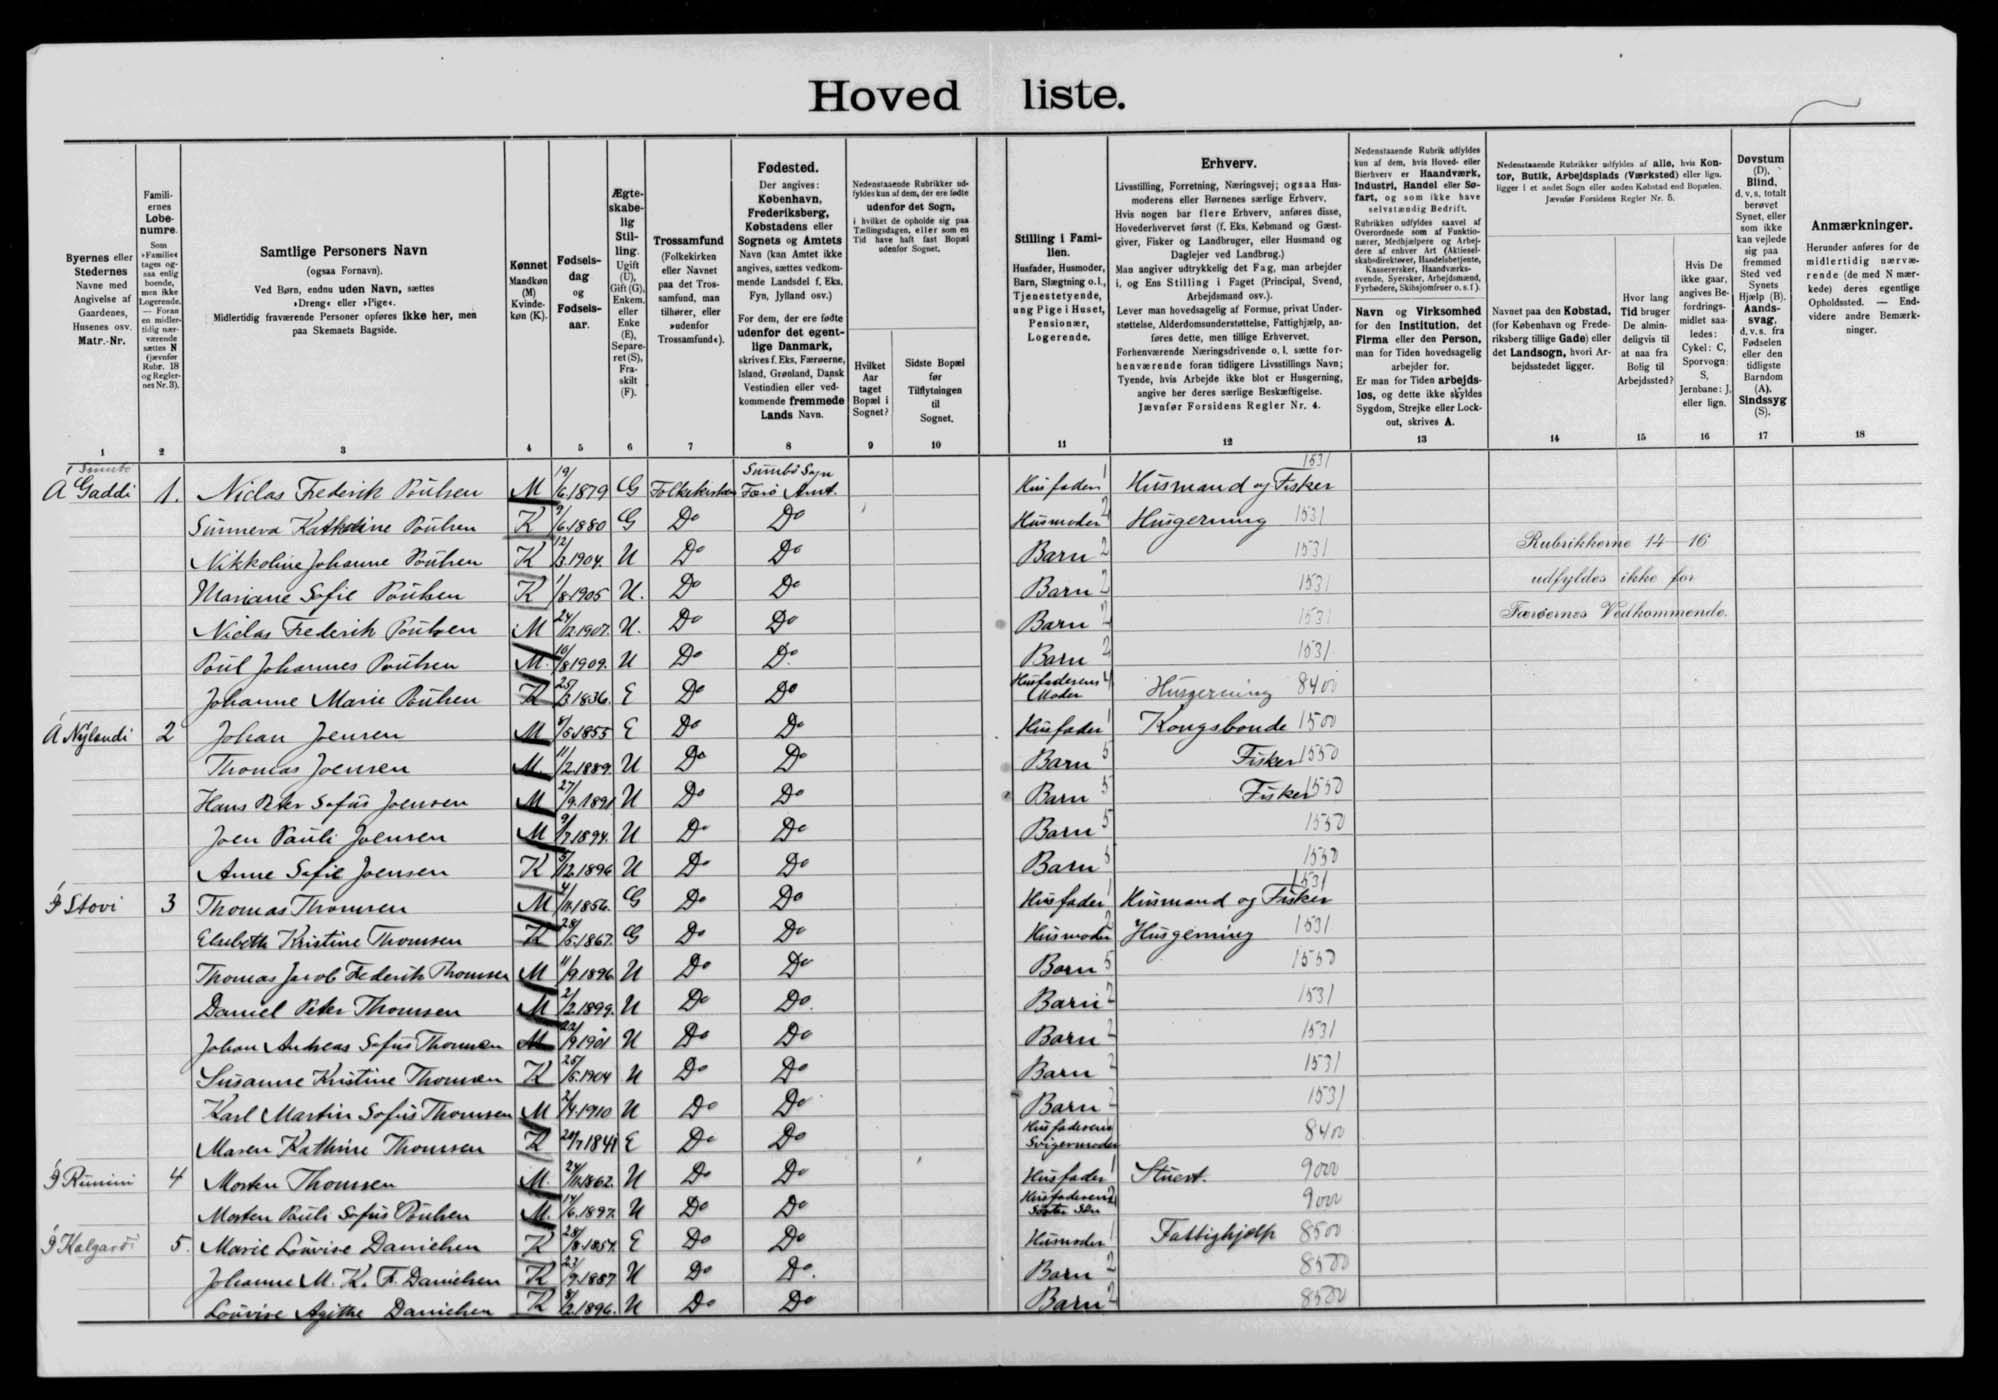 Hoved liste.
Byernes eller
Stedernes
Navne med
Angivelse af
Gaardenes,
Husenes osv.
Matr.-Nr.
Famili-
ernes
Løbe-
numre.
Som
»Familie«
tages og-
saa enlig
boende,
men ikke
Logerende.
— Foran
en midler-
tidig nær-
værende
sættes N
(jævnfør
Rubr. 18
og Regler-
nes Nr. 3).
Samtlige Personers Navn
(ogsaa Fornavn).
Ved Børn, endnu uden Navn, sættes
»Dreng« eller »Pige«.
Midlertidig fraværende Personer opføres ikke her, men
paa Skemaets Bagside.
Kønnet
Mandkøn
(M)
Kvinde-
køn (K).
Fødsels-
dag
og
Fødsels-
aar.
Ægte-
skabe-
lig
Stil-
ling.
Ugift
(U),
Gift (G),
Enkem.
eller
Enke
(E),
Separe-
ret (S),
Fra-
skilt
(F).
Trossamfund
(Folkekirken
eller Navnet
paa det Tros-
samfund, man
tilhører, eller
»udenfor
Trossamfund«).
Fødested.
Der angives:
København,
Frederiksberg,
Købstadens eller
Sognets og Amtets
Navn (kan Amtet ikke
angives, sættes vedkom-
mende Landsdel f. Eks.
Fyn, Jylland osv.)
For dem, der ere fødte
udenfor det egent-
lige Danmark,
skrives f. Eks. Færøerne,
Island, Grønland, Dansk
Vestindien eller ved-
kommende fremmede
Lands Navn.
Nedenstaaende Rubrikker ud-
fyldes kun af dem, der ere fødte
udenfor det Sogn,
i hvilket de opholde sig paa
Tællingsdagen, eller som en
Tid have haft fast Bopæl
udenfor Sognet.
Hvilket
Aar
taget
Bopæl i
Sognet?
Sidste Bopæl
før
Tilflytningen
til
Sognet.
Stilling i Fami-
lien.
Husfader, Husmoder,
Barn, Slægtning o.l.,
Tjenestetyende,
ung Pige i Huset,
Pensionær,
Logerende.
Erhverv.
Livsstilling, Forretning, Næringsvej; ogsaa Hus-
moderens eller Børnenes særlige Erhverv.
Hvis nogen bar flere Erhverv, anføres disse,
Hovederhvervet først (f. Eks. Købmand og Gæst-
giver, Fisker og Landbruger, eller Husmand og
Daglejer ved Landbrug.)
Man angiver udtrykkelig det Fag, man arbejder
i, og Ens Stilling i Faget (Principal, Svend,
Arbejdsmand osv.).
Lever man hovedsagelig af Formue, privat Under-
støttelse, Alderdomsunderstøttelse, Fattighjælp, an-
føres dette, men tillige Erhvervet.
Forhenværende Næringsdrivende o. l. sætte for-
henværende foran tidligere Livsstillings Navn;
Tyende, hvis Arbejde ikke blot er Husgerning,
angive her deres særlige Beskæftigelse.
Jævnfør Forsidens Regler Nr. 4.
Nedenstaaende Rubrik udfyldes
kun af dem, hvis Hoved- eller
Bierhverv er Haandværk,
Industri, Handel eller Sø-
fart, og som ikke have
selvstændig Bedrift.
Rubrikken udfyldes saavel af
Overordnede som af Funktio-
nærer, Medhjælpere og Arbej-
dere af enhver Art (Aktiesel-
skabsdirektører, Handelsbetjente,
Kasserersker, Haandværks-
svende, Syersker, Arbejdsmænd,
Fyrbødere, Skibsjomfruer o. s. f.).
Navn og Virksomhed
for den Institution, det
Firma eller den Person,
man for Tiden hovedsagelig
arbejder for.
Er man for Tiden arbejds-
løs, og dette ikke skyldes
Sygdom, Strejke eller Lock-
out, skrives A.
Nedenstaaende Rubrikker udfyldes af alle, hvis Kon-
tor, Butik, Arbejdsplads (Værksted) eller lign.
ligger i et andet Sogn eller anden Købstad end Bopælen.
Jævnfør Forsidens Regler Nr. 5.
Navnet paa den Købstad,
(for København og Frede-
riksberg tillige Gade) eller
det Landsogn, hvori Ar-
bejdsstedet ligger.
Hvor lang
Tid bruger
De almin-
deligvis til
at naa fra
Bolig til
Arbejdssted?
Hvis De
ikke gaar,
angives Be-
fordrings-
midlet saa-
ledes:
Cykel: C,
Sporvogn:
S,
Jernbane: J,
eller lign.
Døvstum
(D).
Blind,
d. v. s. totalt
berøvet
Synet, eller
som ikke
kan vejlede
sig paa
fremmed
Sted ved
Synets
Hjælp (B).
Aands-
svag,
d. v. s. fra
Fødselen
eller den
tidligste
Barndom
(A).
Sindssyg
(S).
Anmærkninger.
Herunder anføres for de
midlertidig nærvæ-
rende (de med N mær-
kede) deres egentlige
Opholdssted. — End-
videre andre Bemærk-
ninger.
1 2 3 4 5 6 7 8 9 10 11 12 13 14 15 16 17 18
Sumbø Sogn 1531
Á Gaddi 1. Niclas Frederik Poulsen M 19/6.1879 G Folkekirken Færø Amt. Husfader 1 Husmand og Fisker
Sunneva Kathrine Poulsen K 9/6.1880 G Do Do Husmoder 2 Husgerning 1531
Nikkoline Johanne Poulsen K 12/3.1904. U Do Do Barn 2 1531 Rubrikkerne 14—16
Mariane Sofie Poulsen K 11/8.1905 U. Do Do Barn 2 1531 udfyldes ikke for
Niclas Frederik Poulsen M 24/12.1907. U. Do Do Barn 2 1531 Færøernes Vedkommende.
Poul Johannes Poulsen M. 10/8.1909. U Do Do Barn 2 1531
Johanne Marie Poulsen K 25/3.1836. E Do Do Husfaderens Moder 4 Husgerning 8400
Á Nýlendi 2 Johan Joensen M /5.1855 E Do Do Husfader 1 Kongsbonde 1500
Thomas Joensen M. 11/2.1889. U Do Do Barn 5 Fisker 1550
Hans Peter Sofus Joensen M 27/9.1891 U Do Do Barn 5 Fisker 1550
Joen Pauli Joensen M 9/7.1894. U Do Do Barn 5 1550
Anne Sofie Joensen K /12.1896 U Do Do Barn 5 1550
Í Stovi 3 Thomas Thomsen M 4/11.1856. G Do Do Husfader 1 Husmand og Fisker 1531
Elsebeth Kristine Thomsen K 28/5.1867. G Do Do Husmoder 2 Husgerning 1531
Thomas Jacob Frederik Thomsen M 11/9.1896 U Do Do Barn 5 1550
Daniel Peter Thomsen M 2/2.1899. U Do Do. Barn 2 1531
Johan Andreas Sofus Thomsen M 22/9.1901 U Do Do Barn 2 1531
Susanne Kristine Thomsen K 25/5.1904 U Do Do Barn 2 1531
Karl Martin Sofus Thomsen M 2/4.1910 U Do Do Barn 2 1531
Maren Kathrine Thomsen K 20/7.1841 E Do Do Husfaderens Svigermoder 8400
Í Rúnini 4 Morten Thomsen M. 24/11.1862. U Do Do Husfader 1 Stuert. 9000
Morten Pauli Sofus Poulsen M. 14/6.1897. U Do Do Husfaderens Søster Søn 2 9000
Í Kálgardi 5. Marie Louvise Danielsen K 28/8.1857. E Do Do Husmoder 1 Fattighjælp 8500
Johanne M. K. F. Danielsen K 23/9.1887. U Do Do. Barn 2 8500
Louvise Agathe Danielsen K 8/2.1896. U Do Do Barn 2 8500